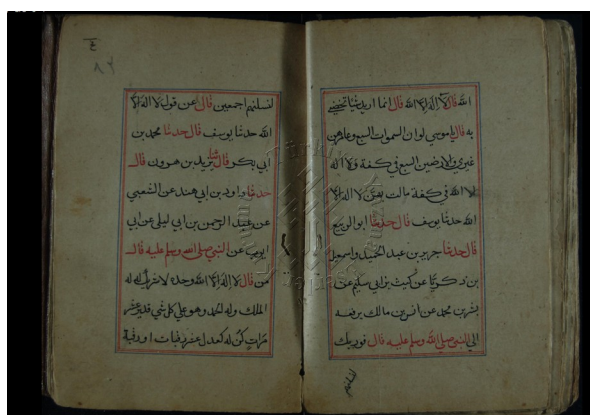 الله قال لا اله الا الله قال انما اريد شيئا تخصني
به قال يا موسى لو ان السموات السبع وعامرهن
غيري والارضين السبع في كفة ولا اله
الا الله في كفة مالت بهن لا اله الا
الله حدثنا يوسف قال حدثنا ابو الربيع
قال حدثنا جرير بن عبد الحميد واسمعيل
بن زكريا عن ليث بن ابي سليم عن
بشر بن محمد عن انس بن مالك يرفعه
الى النبي صلى الله وسلم عليه قال فوربك
لنسئلنهم
٤
٨٣
لنسئلنهم اجمعين قال عن قول لا اله الا
الله حدثنا يوسف قال حدثنا محمد بن
ابي بكر قال يزيد بن هرون قال
حدثنا داود بن ابي هند عن الشعبي
عن عبد الرحمن بن ابي ليلى عن ابي
ايوب عن النبي صلى الله وسلم عليه قال
من قال لا اله الا الله وحده لا شريك له له
الملك وله الحمد وهو على كل شي قدير عشر
مرات كن له كعدل عشر رقبات او رقبة